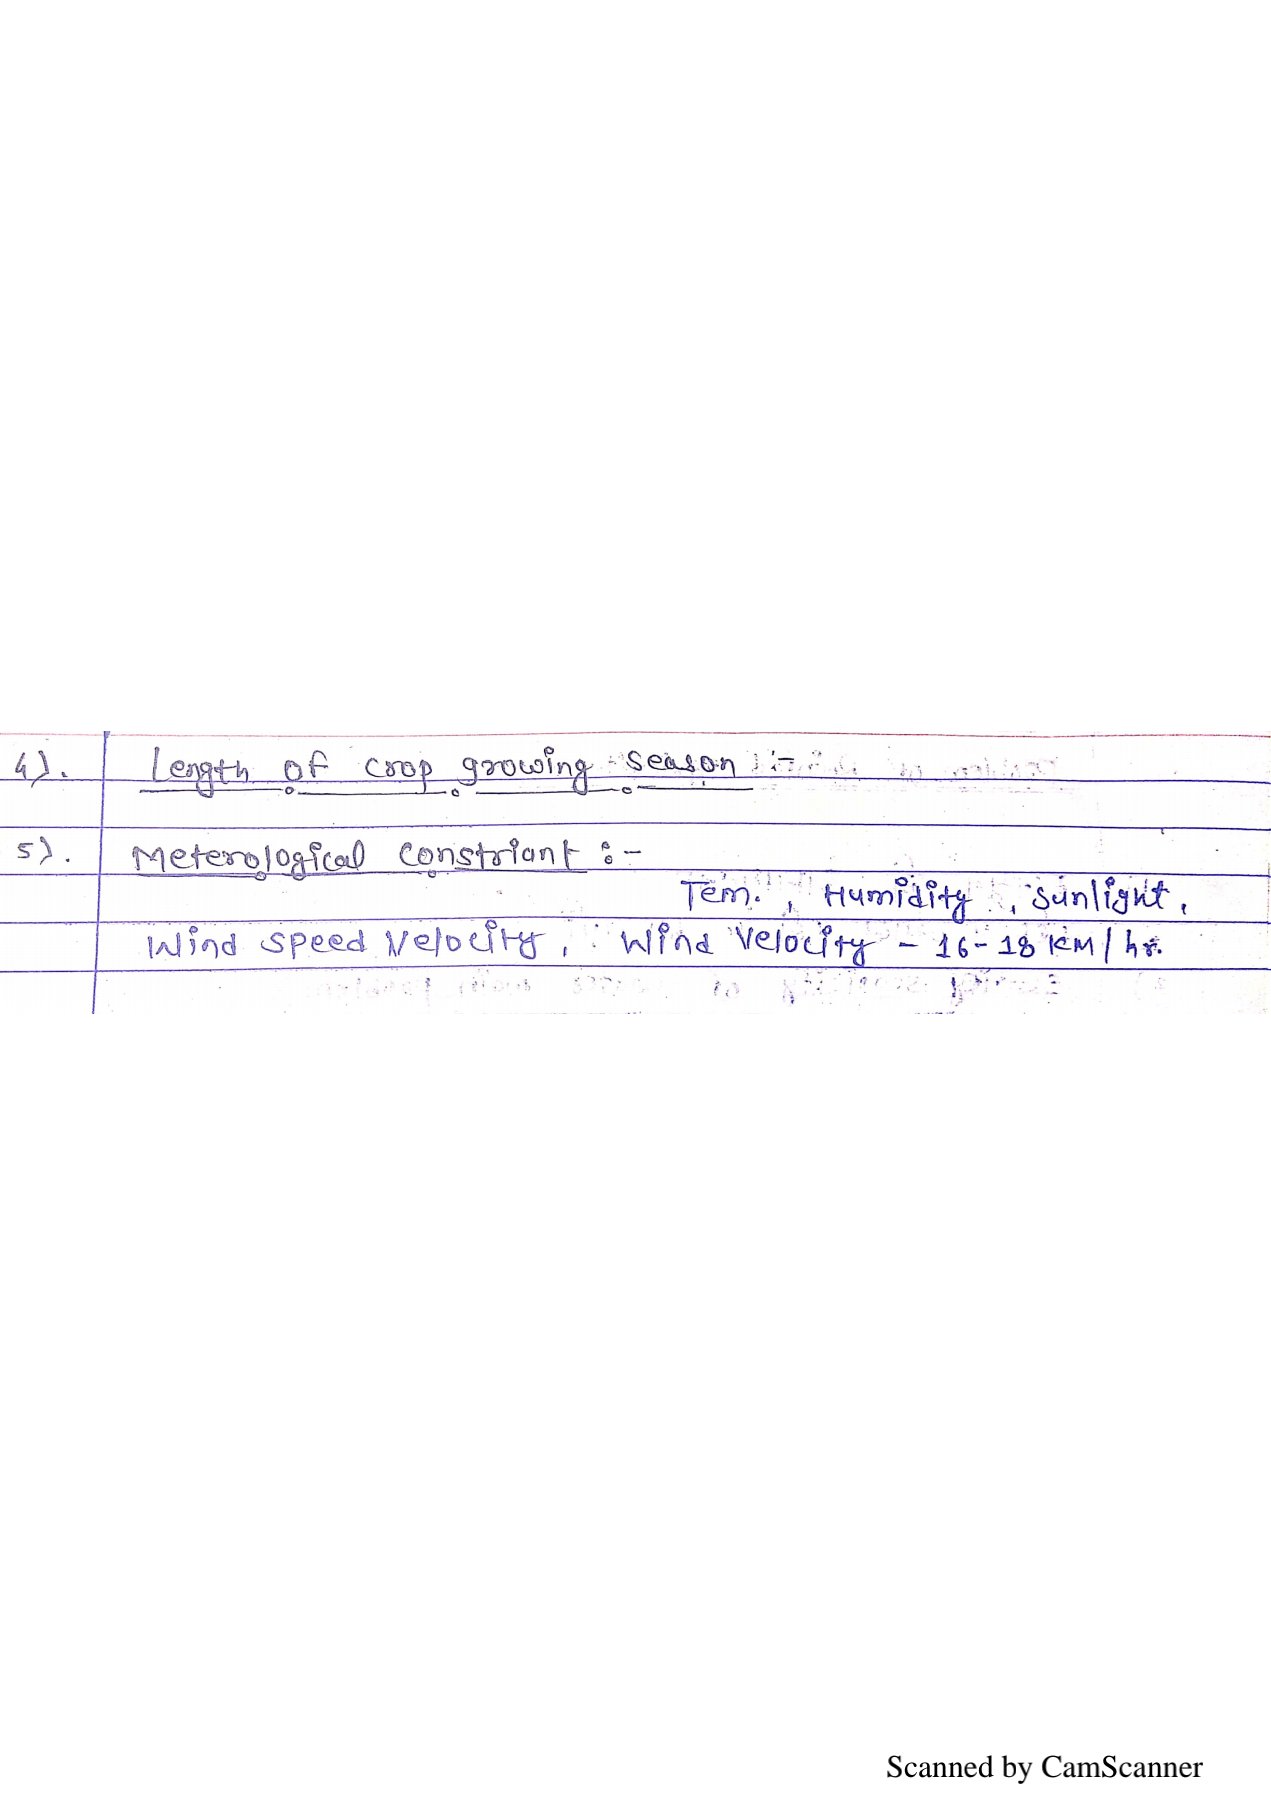 4). Length of crop growing season :-
5). Meterological constriant :-
Tem. , Humidity , Sunlight ,
Wind speed velocity , Wind velocity - 16-18 KM/hr.
Scanned by CamScanner